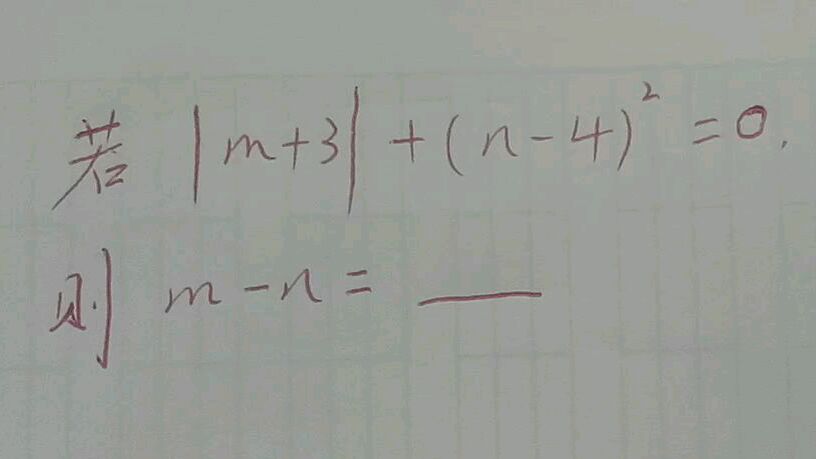 若 |m+3|+(n-4)²=0.
则 m-n=___